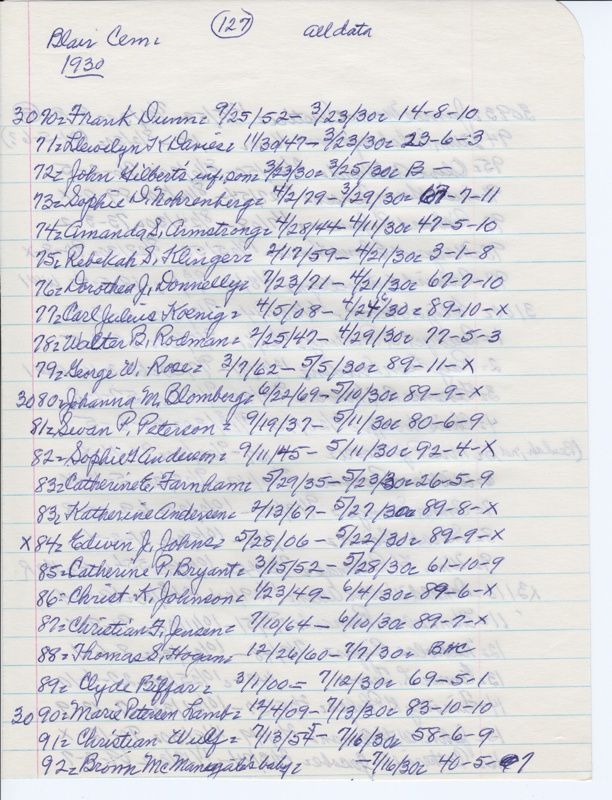 127
all data
Blair Cem.
1930
3070= Frank Dunn= 9/25/52- 3/23/30= 14-8-10
71= Llewelyn K Davies= 11/30/47- 3/23/30= 23-6-3
72= John Hilbert's inf. son= 3/23/30= 3/25/30= B -
73= Sophie D. Nohrenberg= 4/2/79- 3/29/30= 67-7-11
74= Amanda S. Armstrong= 4/28/44- 4/11/30= 47-5-10
75= Rebekah S. Klinger= 2/17/59- 4/21/30= 3-1-8
76= Dorothea J. Donnelly= 7/23/71- 4/21/30= 67-7-10
77= Carl Julius Koenig= 4/5/08- 4/24/30= 89-10-X
78= Walter B. Rodman= 2/25/47- 4/29/30= 77-5-3
79= George W. Rose= 3/7/62- 5/5/30= 89-11-X
3080= Johanna M. Blomberg= 6/22/69- 5/10/30= 89-9-X
81= Swan P. Peterson= 9/19/37- 5/11/30= 80-6-9
82= Sophie Anderson= 9/11/45- 5/11/30= 92-4-X
83= Catherine E. Farnham= 5/29/35- 5/23/30= 26-5-9
83= Katherine Andersen= 2/13/67- 5/27/30= 89-8-X
X 84= Edwin J. Johns= 5/28/06- 5/22/30= 89-9-X
85= Catherine P. Bryant= 3/15/52- 5/28/30= 61-10-9
86= Christ K. Johnson= 1/23/49- 6/4/30= 89-6-X
87= Christian F. Jensen= 7/10/64- 6/10/30= 89-7-X
88= Thomas S. Hogan= 12/26/60- 7/7/30= BHC
89= Clyde Biffar= 3/1/00= 7/12/30= 69-5-1
3090= Marie Petersen Lamb= 12/4/09- 7/13/30= 83-10-10
91= Christian Wulf= 7/13/55- 7/16/30= 58-6-9
92= Brown baby= -7/16/30= 40-5-7